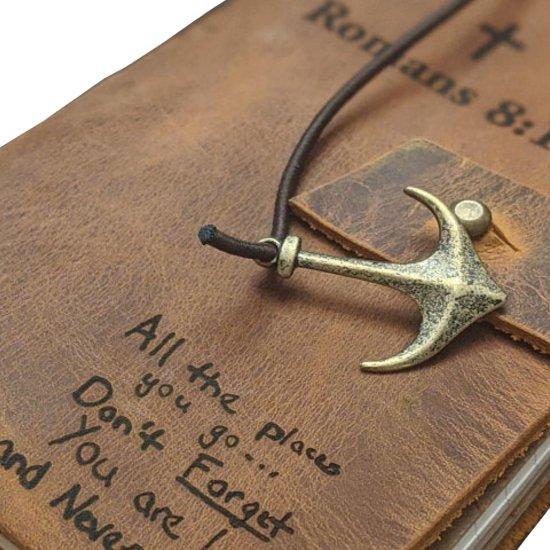 Romans 8:
All the places
you go...
Don't Forget
you are
and Never